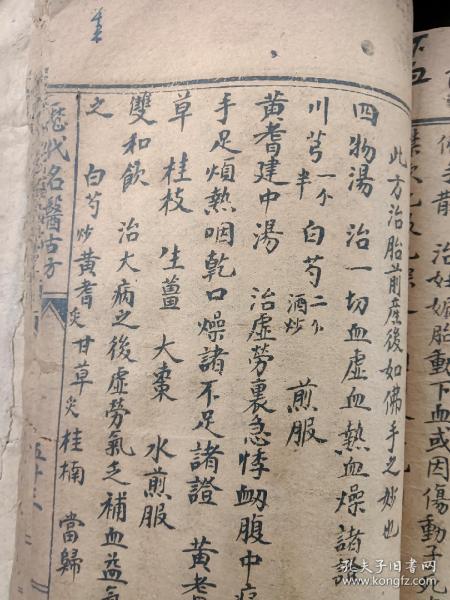 此方治胎前產後如佛手之妙也
四物湯 治一切血虛血熱血燥諸
川芎一个半 白芍二个酒炒 煎服
黃耆建中湯 治虛勞裏急悸衂腹中
手足煩熱咽乾口燥諸不足諸證 黃耆
草 桂枝 生薑 大棗 水煎服
雙和飲 治大病之後虛勞氣乏補血益氣
之 白芍炒 黃耆炙 甘草炙 桂楠 當歸
歷代名醫古方
五十三
治妊娠胎動下血或因傷動子
孔夫子旧书网
www.kongfz.com